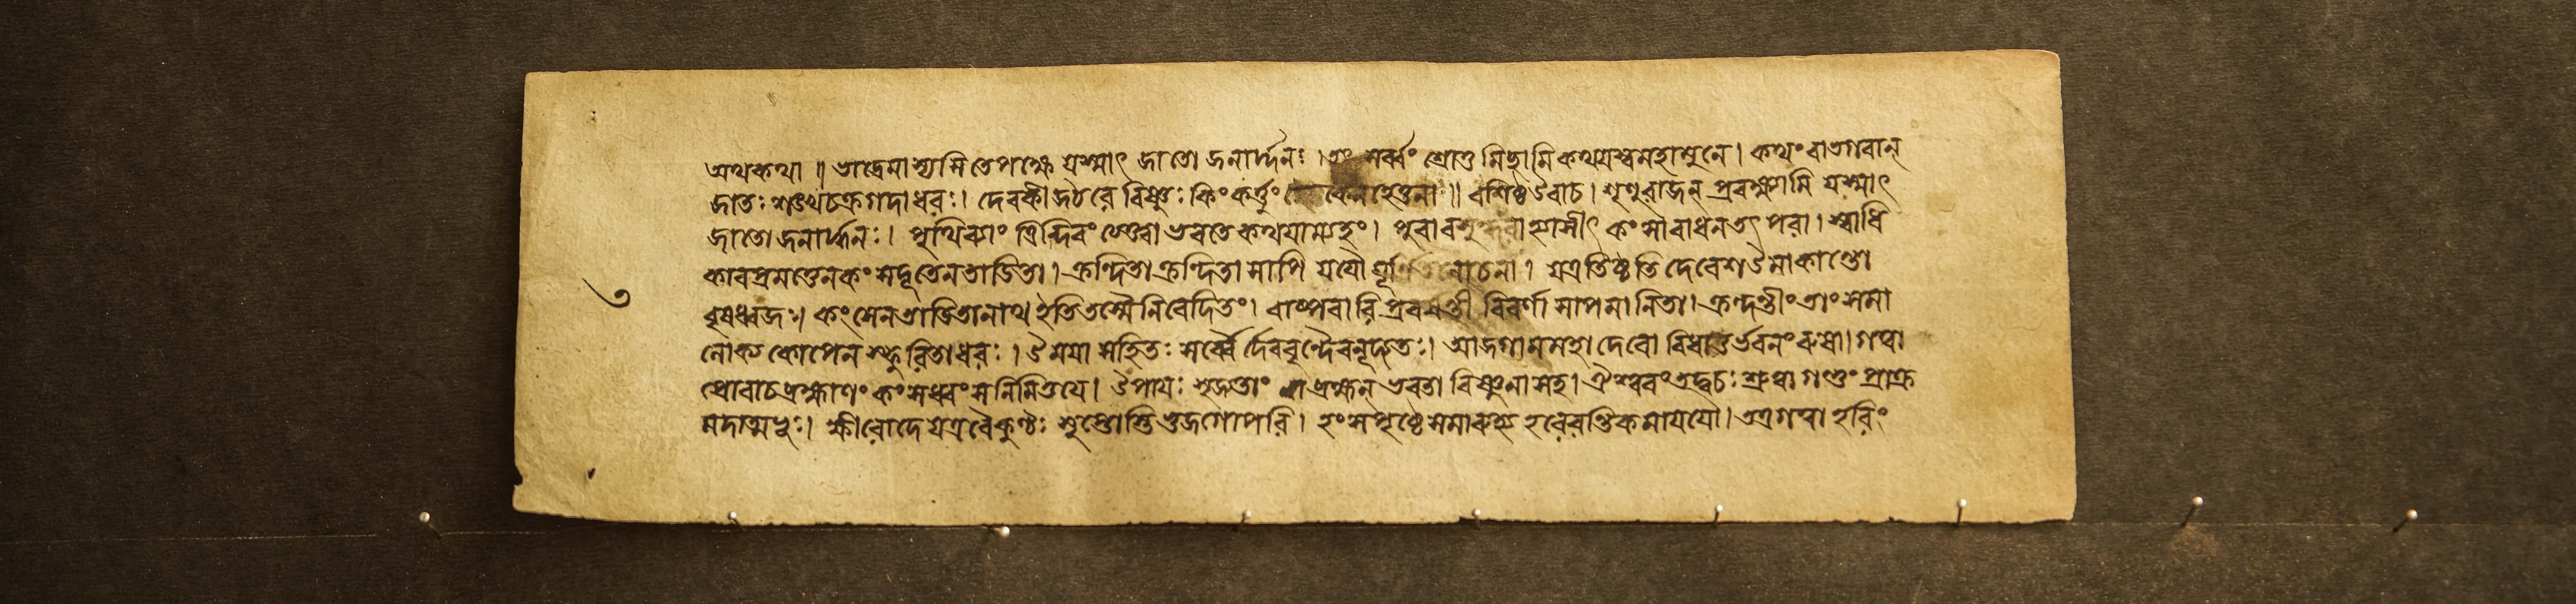 অথ কথা ॥ ভাদ্রে মাস্যসিতে পক্ষে যস্মাৎ জাতো জনার্দ্দনঃ । তং সর্ব্বং শ্রোতুমিচ্ছামি কথযস্ব মহামুনে । কথং বা ভগবান্
জাতঃ শঙ্খচক্রগদাধরঃ । দেবকীজঠরে বিষ্ণুঃ কিং কর্ত্তুং কেন হেতুনা ॥ বশিষ্ঠ উবাচ । শৃণু রাজন্ প্রবক্ষ্যামি যস্মাৎ
জাতো জনার্দ্দনঃ । পৃথিব্যাং ত্রিদিবং ত্যক্ত্বা ভবতে কথযাম্যহং । পুরা বসুন্ধরা হ্যাসীৎ কংসারাধনতৎপরা । স্বাধি
কারপ্রমত্তেন কংসদূতেন তাডিতা । ক্রন্দিতা ক্রন্দিতা সাপি যযৌ ঘূর্ণিতলোচনা । যত্র তিষ্ঠতি দেবেশ উমাকান্তো
বৃষধ্বজঃ । কংসেন তাডিতা নাথ ইতি তস্মৈ নিবেদিতং । বাষ্পবারি প্রবর্ষন্তী বিবর্ণা সাপমানিতা । ক্রন্দন্তীং তাং সমা
লোক্য কোপেন স্ফুরিতাধরঃ । উমযা সহিতঃ সর্ব্বৈর্দেববৃন্দৈরনুদ্রুতঃ । আজগাম মহাদেবো বিধাতুর্ভবনং রুষা । গত্বা
প্রোবাচ ব্রহ্মাণং কংসধ্বংসনিমিত্তযে । উপাযঃ সৃজ্যতাং ব্রহ্মন্ ভবতা বিষ্ণুনা সহ । ঐশ্বরং তদ্বচঃ শ্রুত্বা গন্তুং প্রাক্র
মদাত্মভূঃ । ক্ষীরোদে যত্র বৈকুণ্ঠঃ সুপ্তোস্তি ভুজগোপরি । হংসপৃষ্ঠে সমারুহ্য হরেরন্তিকমাযযৌ । তত্র গত্বা হরিং